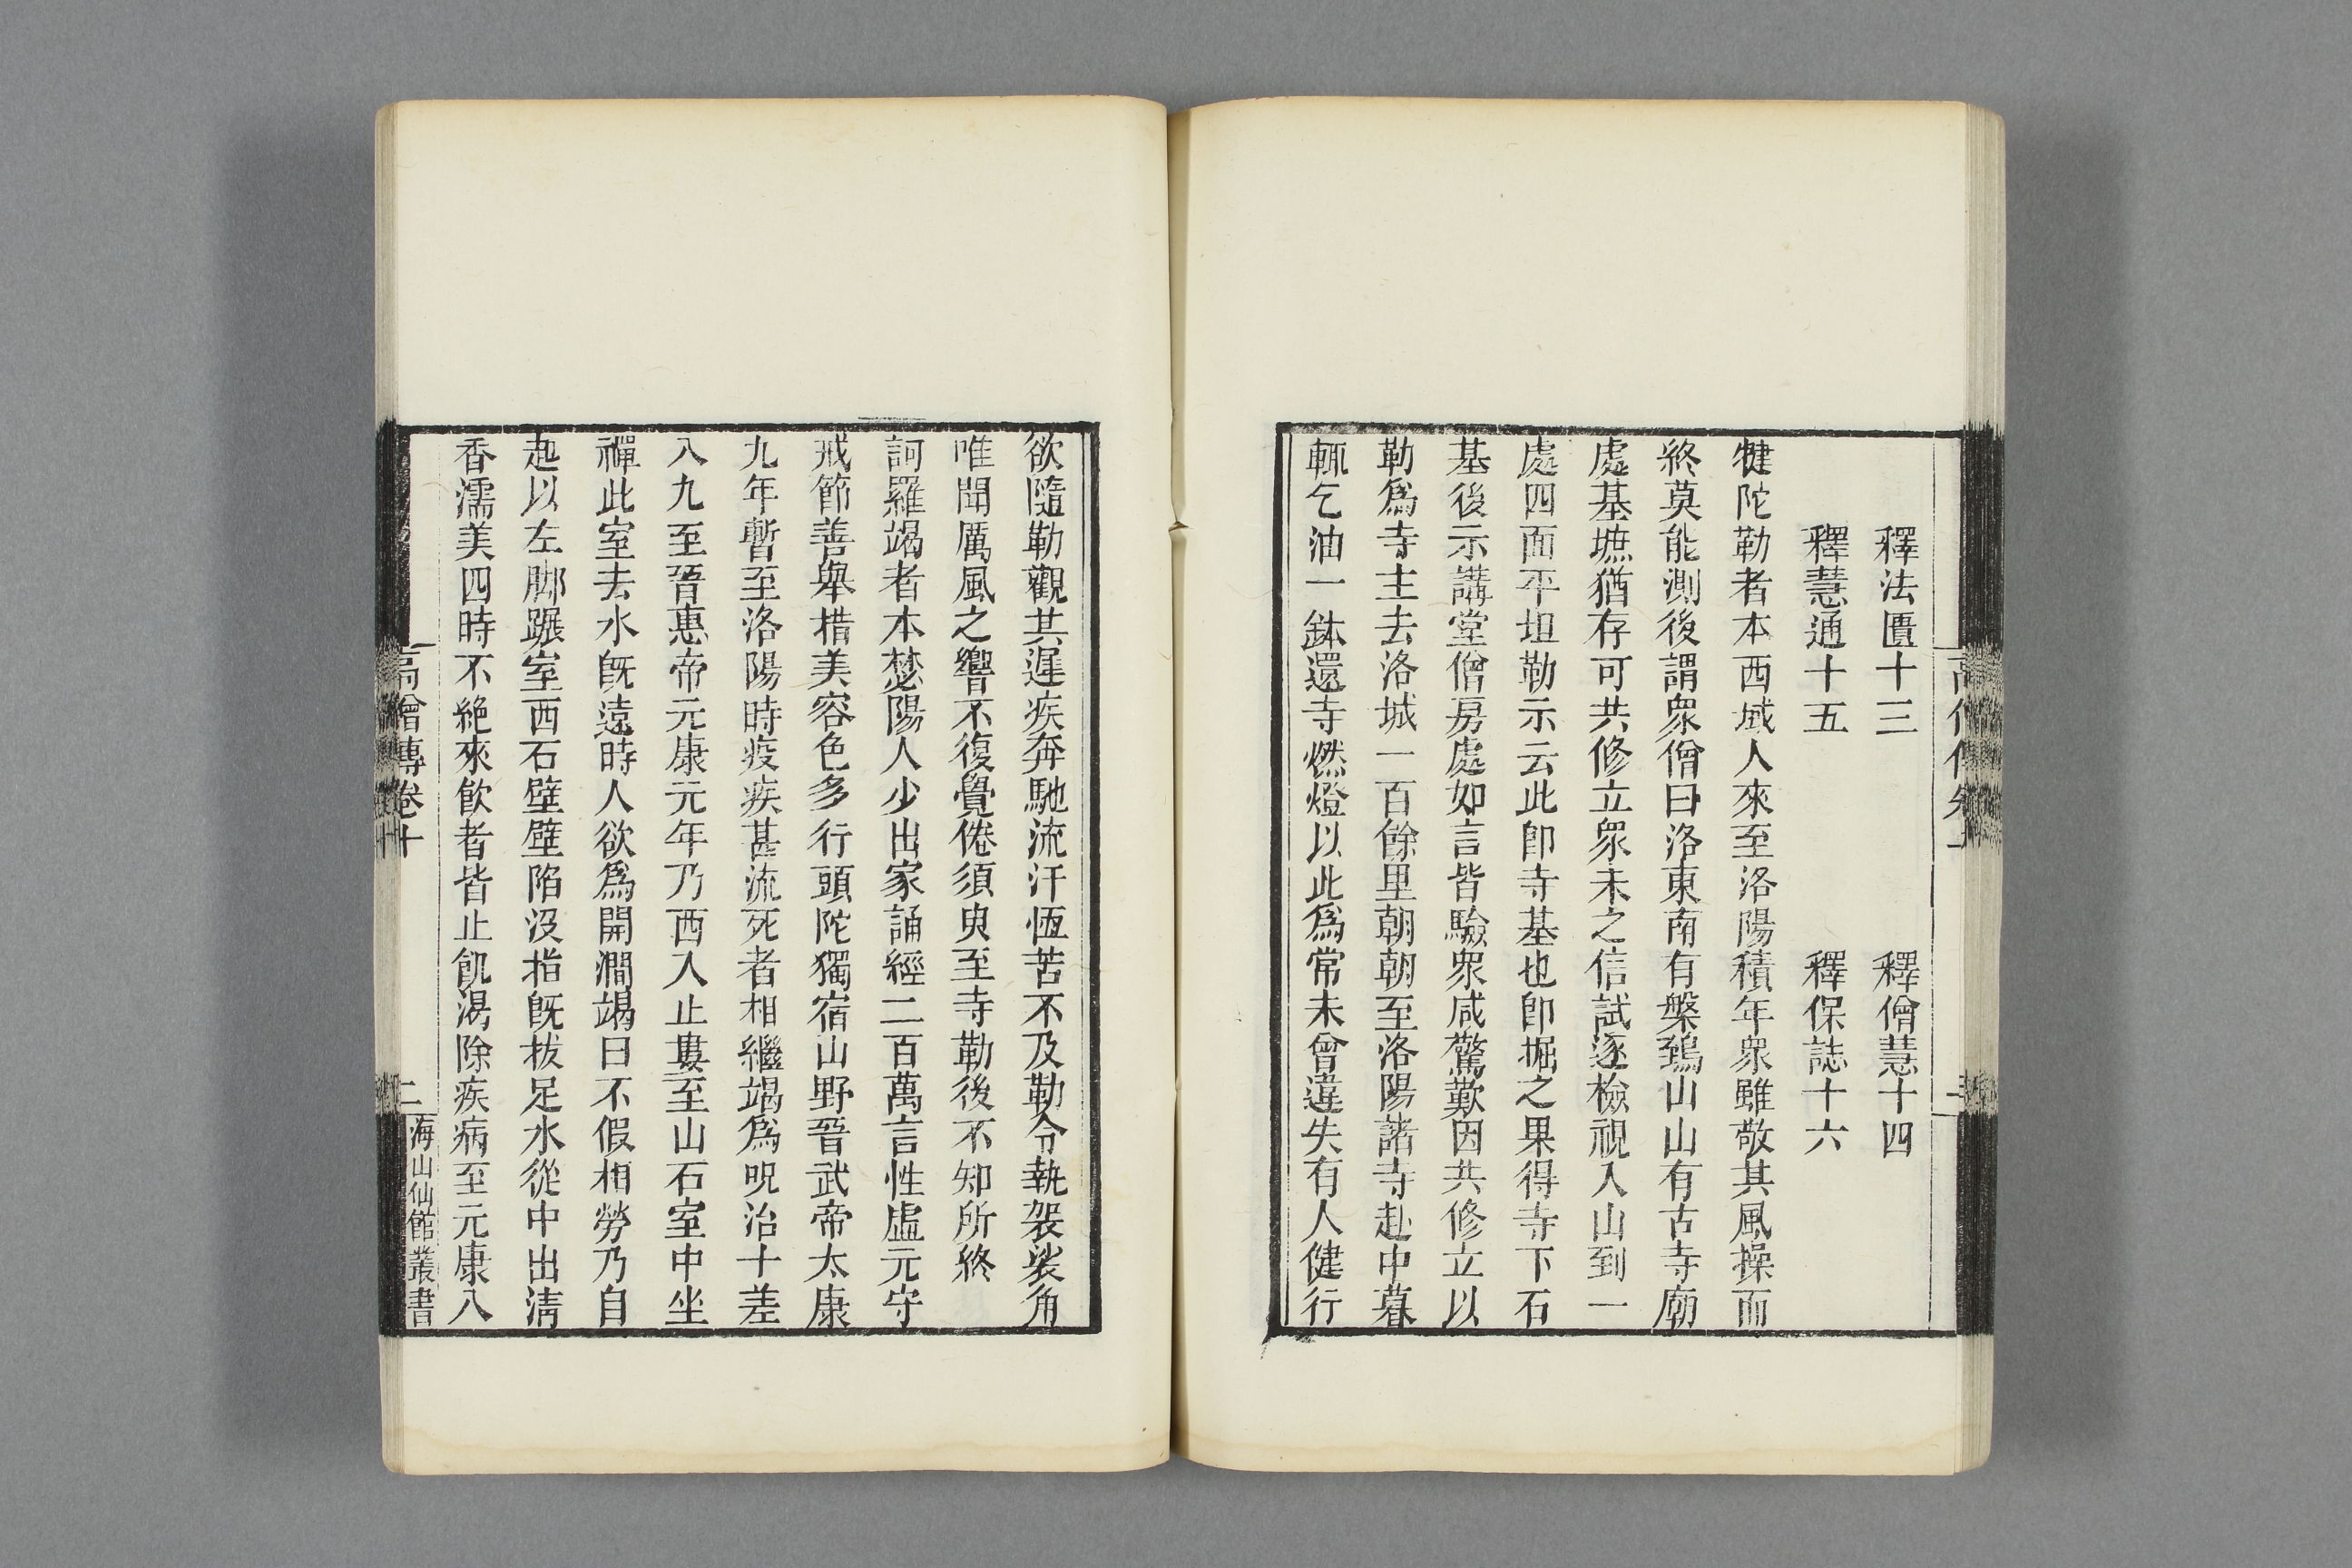 釋法匱十三　釋僧慧十四
釋慧通十五　釋保誌十六
犍陀勒者本西域人來至洛陽積年衆雖敬其風操而
終莫能測後謂衆僧曰洛東南有槃鵄山山有古寺廟
處基墌猶存可共修立衆未之信試逐檢視入山到一
處四面平坦勒示云此卽寺基也卽掘之果得寺下石
基後示講堂僧房處如言皆驗衆咸驚歎因共修立以
勒爲寺主去洛城一百餘里朝朝至洛陽諸寺赴中暮
輒乞油一鉢還寺燃燈以此爲常未曾違失有人健行
欲隨勒觀其遲疾奔馳流汗恆苦不及勒令執袈裟角
唯聞厲風之響不復覺倦須臾至寺勒後不知所終
訶羅竭者本樊陽人少出家誦經二百萬言性虛元守
戒節善舉措美容色多行頭陀獨宿山野晉武帝太康
九年暫至洛陽時疫疾甚流死者相繼竭爲呪治十差
八九至晉惠帝元康元年乃西入止婁至山石室中坐
禪此室去水旣遠時人欲爲開澗竭曰不假相勞乃自
起以左脚蹍室西石壁壁陷沒指旣拔足水從中出淸
香濡美四時不絕來飮者皆止飢渴除疾病至元康八
高僧傳卷十
二
海山仙館叢書